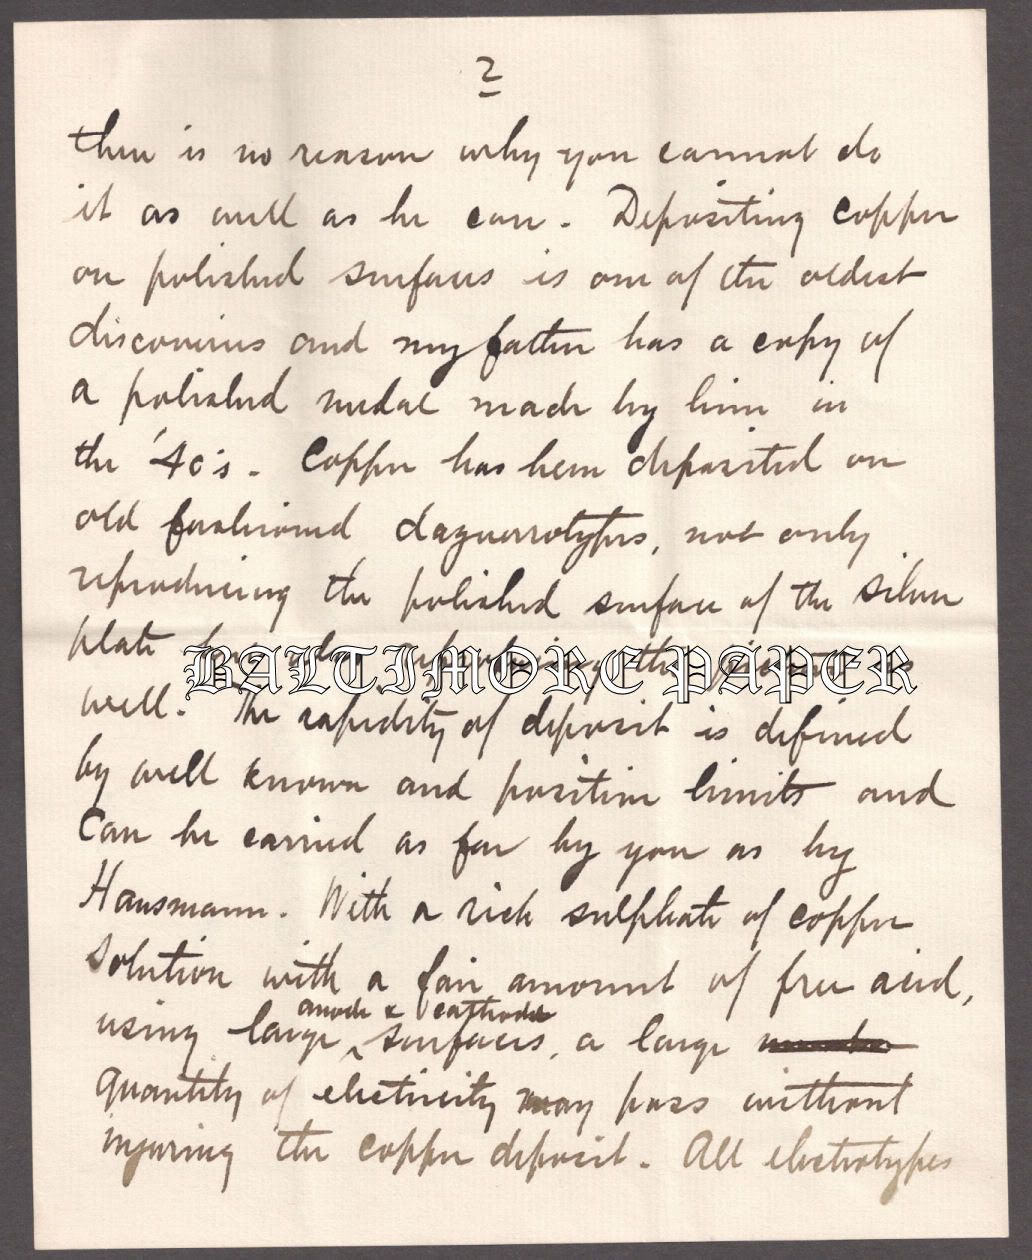 2
there is no reason why you cannot do
it as well as he can. Depositing copper
on polished surfaces is one of the oldest
discoveries and my father has a copy of
a polished medal made by him in
the '40's. Copper has been deposited on
old fashioned daguerrotypes, not only
reproducing the polished surface of the silver
plate but also the picture as
BALTIMORE PAPER
well. The rapidity of deposit is defined
by well known and positive limits and
can be carried as far by you as by
Hausmann. With a rich sulphate of copper
solution with a fair amount of free acid,
anode & cathode
using large surfaces, a large
quantity of electricity may pass without
injuring the copper deposit. All electrotypes